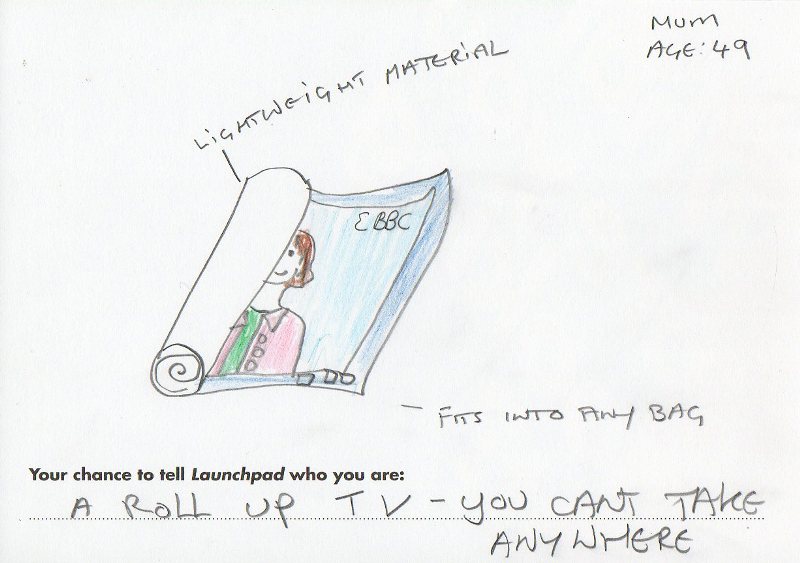 Mum
AGE: 49
LIGHTWEIGHT MATERIAL
BBC
FITS INTO ANY BAG
Your chance to tell Launchpad who you are:
A ROLL UP TV - YOU CANT TAKE
ANYWHERE